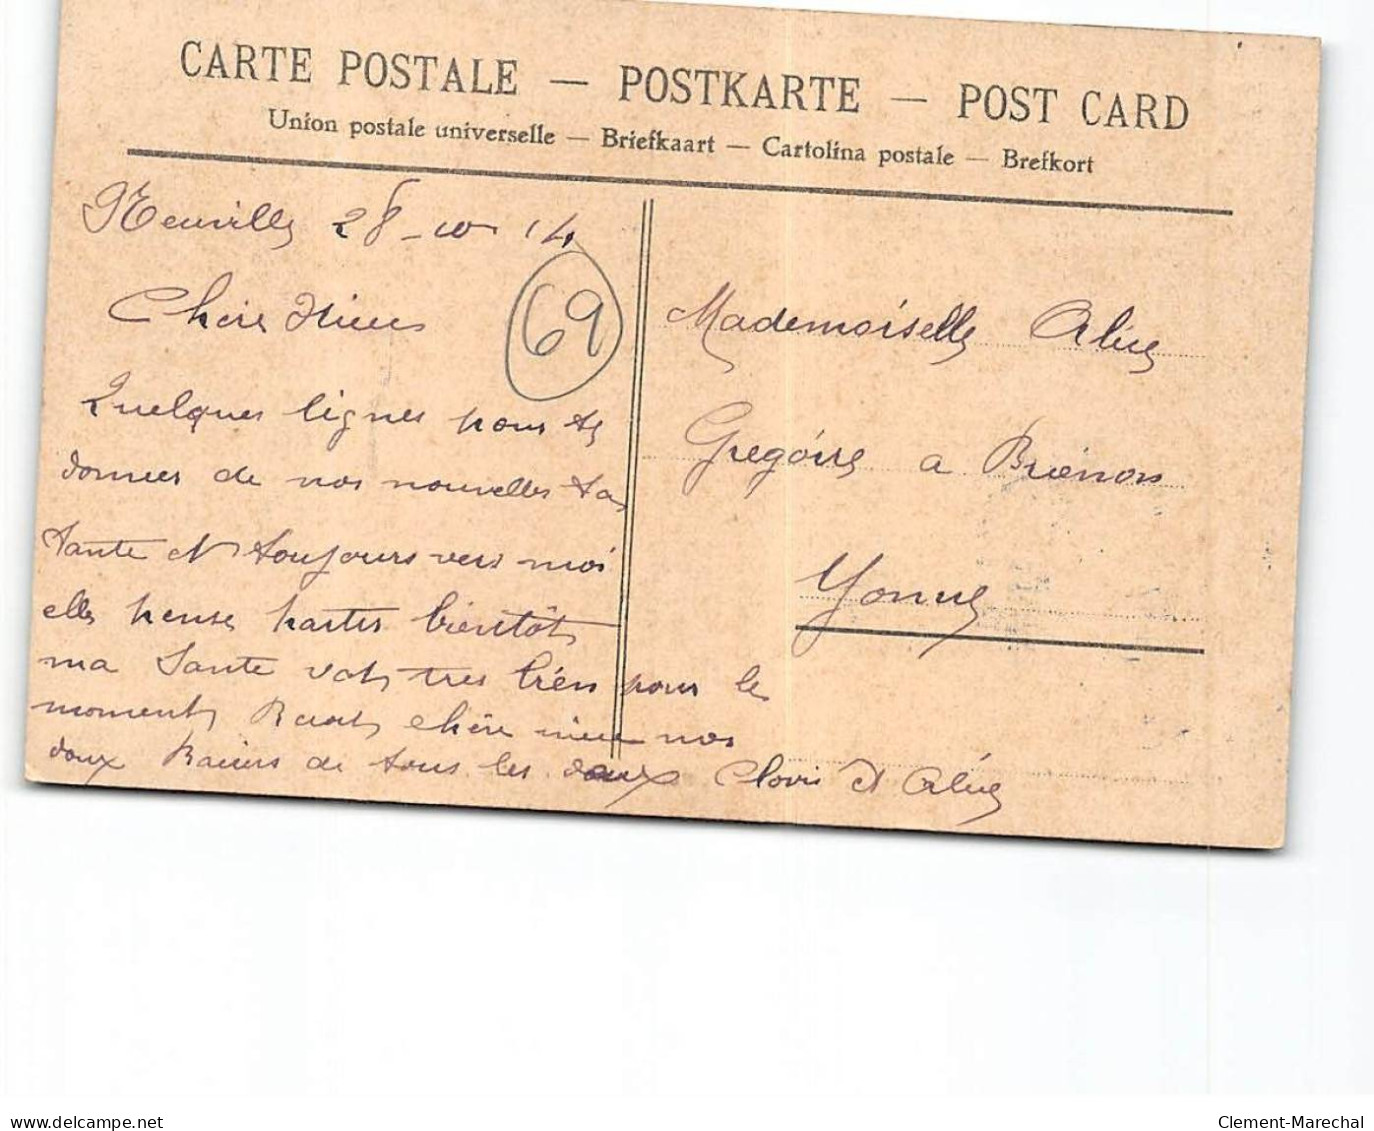 CARTE POSTALE — POSTKARTE — POST CARD
Union postale universelle — Briefkaart — Cartolina postale — Brefkort
Neuville 28-10 14
Chère Nièce
69
Quelques lignes pour te
donner de nos nouvelles ta
tante et toujours vers moi
elle pense partir bientôt
ma Santé vat tres bién pour le
moment Reçoit chère nièce nos
doux Baiers de tous les deux Clovis et Alice
Mademoiselle Alice
Gregóire a Brienon
Yonne
delcampe.net
Clement-Marechal